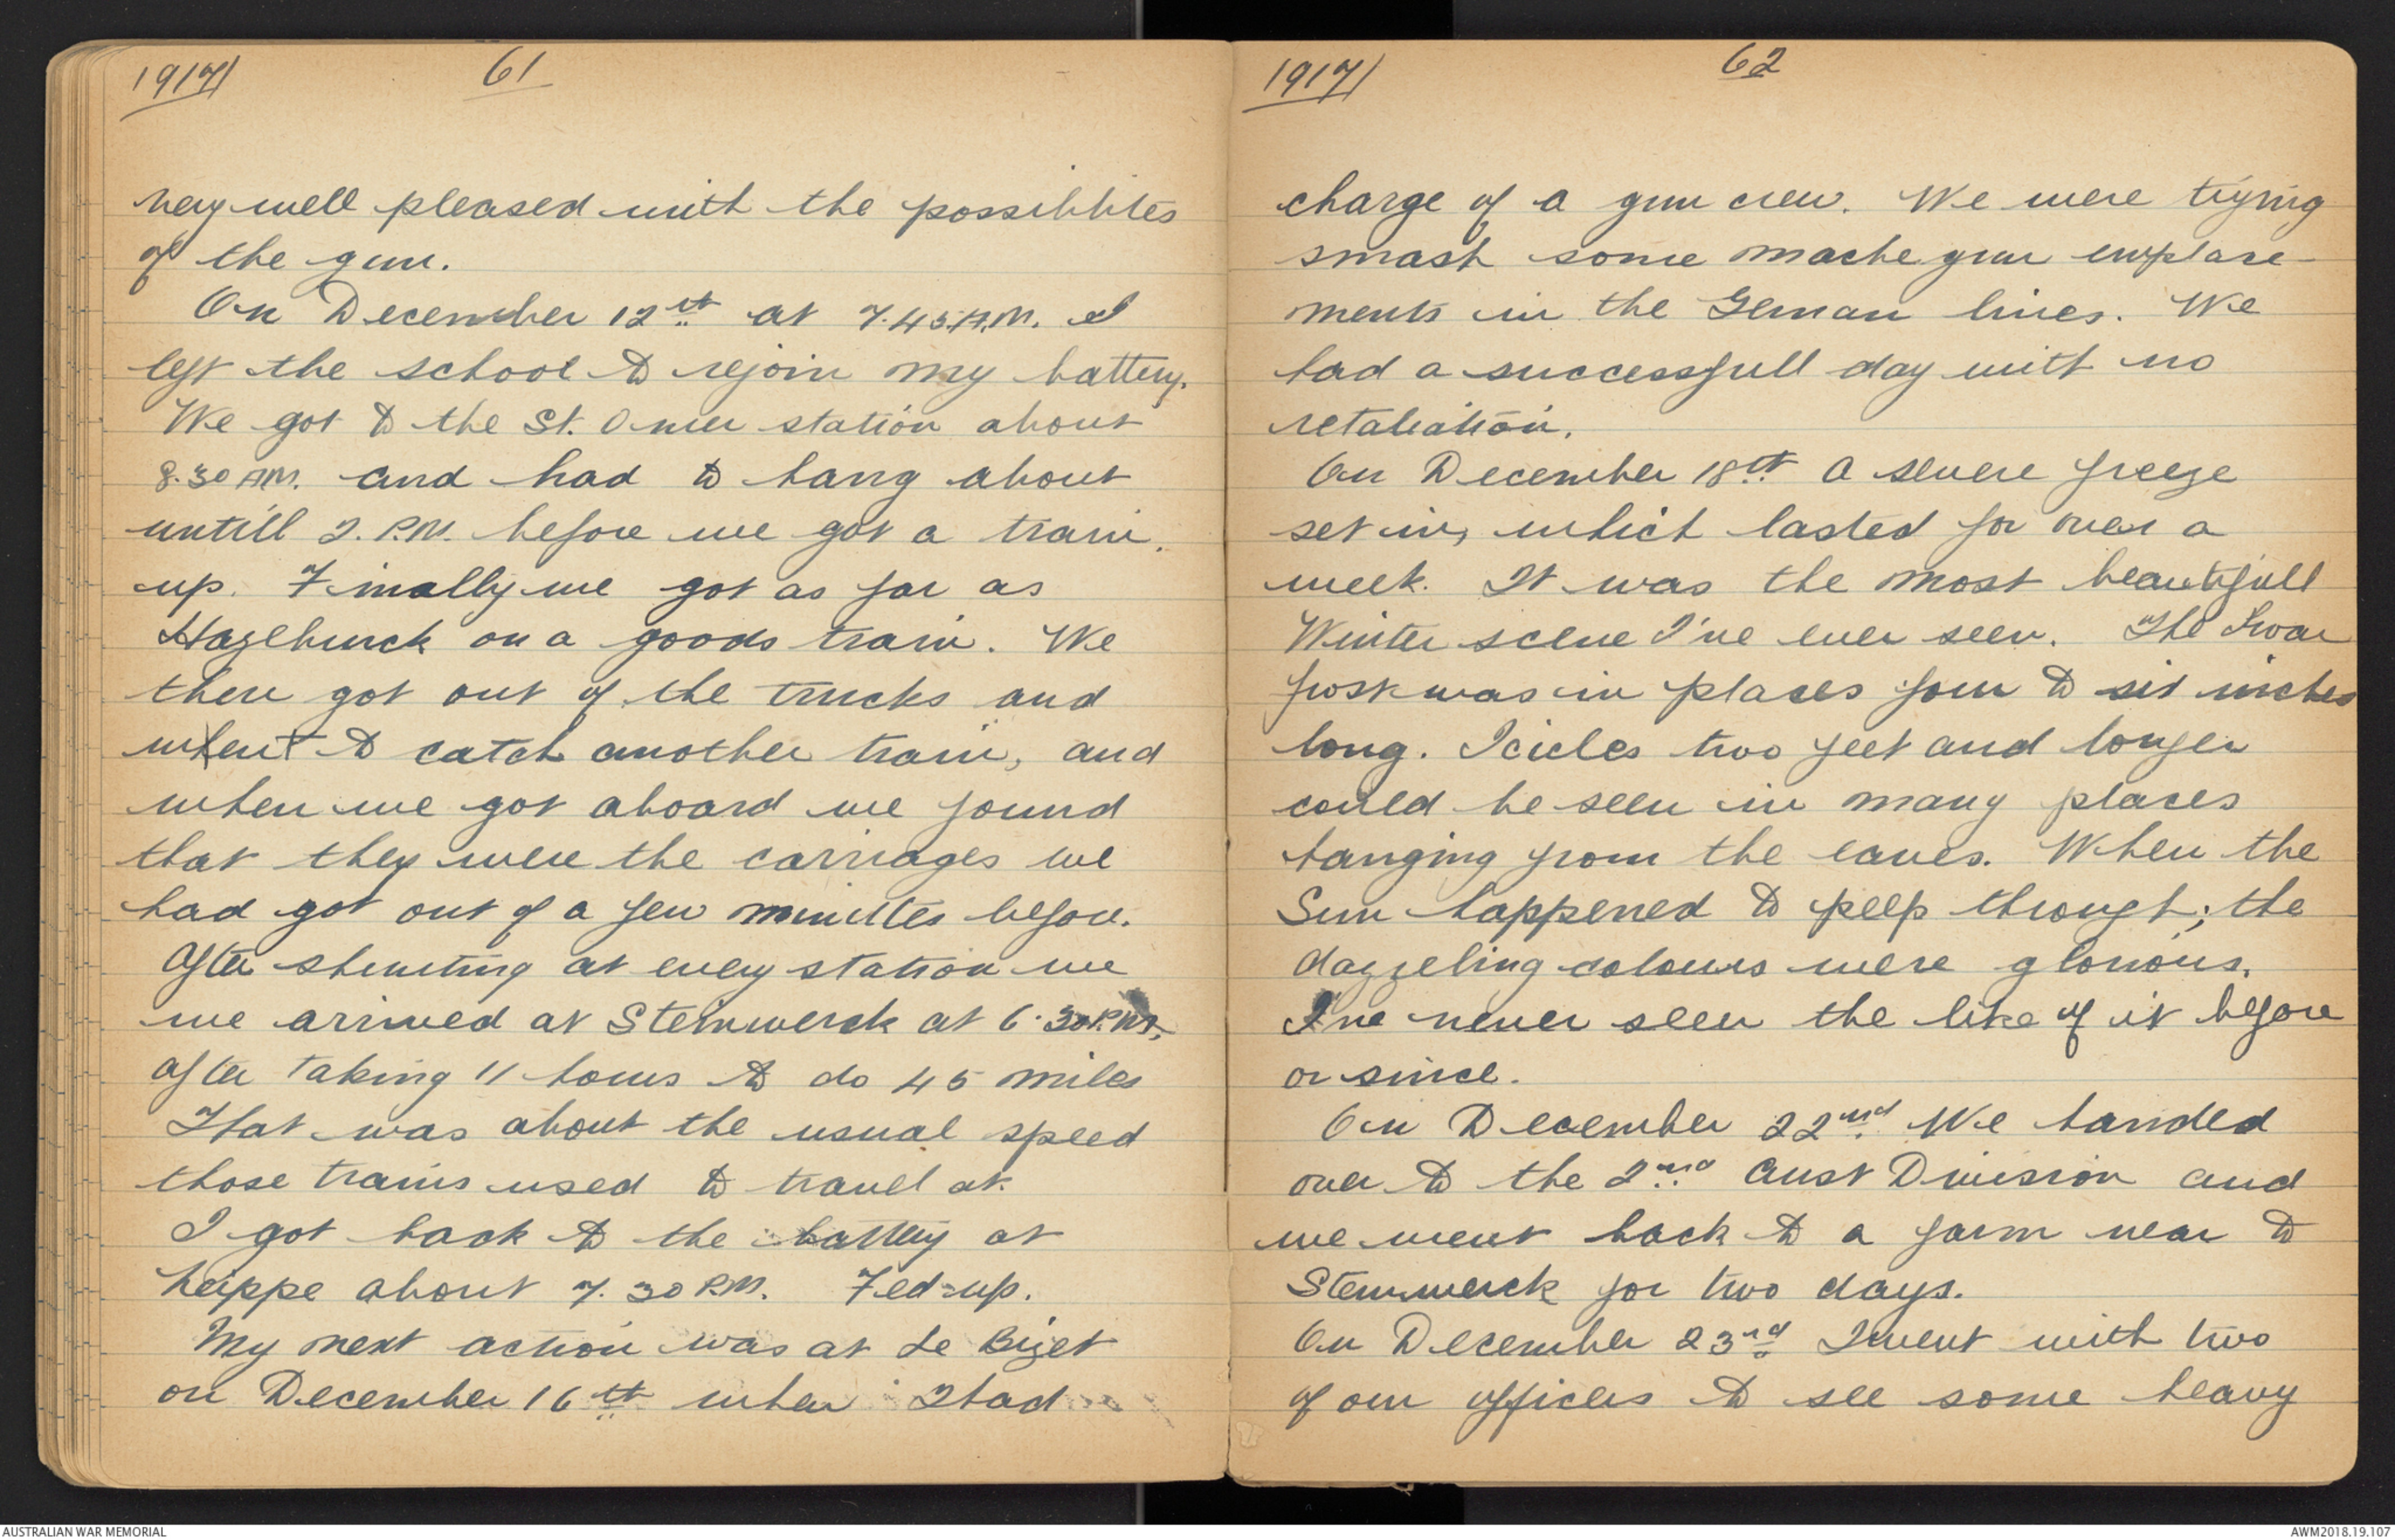 1917/
61
very well pleased with the possiblites
of the gun.
On December 12th at 7.45.A.M. I
left the school to rejoin my battery.
We got to the St. Omer station about
8.30 AM. and had to hang about
untill 2. P.M. before we got a train.
up. Finally we got as far as
Hazelburck on a goods train. We
then got out of the trucks and
when't to catch another train, and
when we got aboard we found
that they were the carriages we
had got out of a few minutes before.
After shunting at every station we
we arrived at Steinwerck at 6.30 P.M.,
after taking 11 hours to do 45 miles
That was about the usual speed
those trains used to travel at.
I got back to the battery at
Neippe about 7.30 P.M. Fed-up.
My next action was at Le Bizet
on December 16th when I had
1917/
62
charge of a gun crew. We were trying
smash some mache gun emplace-
ments in the German lines. We
had a successfull day with no
retaliation.
On December 18th a severe freeze
set in, which lasted for over a
week. It was the most beautifull
Winter scene I've ever seen. The hoar
frost was in places four to six inches
long. Icicles two feet and longer
could be seen in many places
hanging from the eaves. When the
Sun happened to peep through; the
dazzeling colours were glorious.
I've never seen the like of it before
or since.
On December 22nd We handed
over to the 2nd Aust Division and
we went back to a farm near to
Steinwerck for two days.
On December 23rd I went with two
of our officers to see some heavy
AUSTRALIAN WAR MEMORIAL
AWM2018.19.107